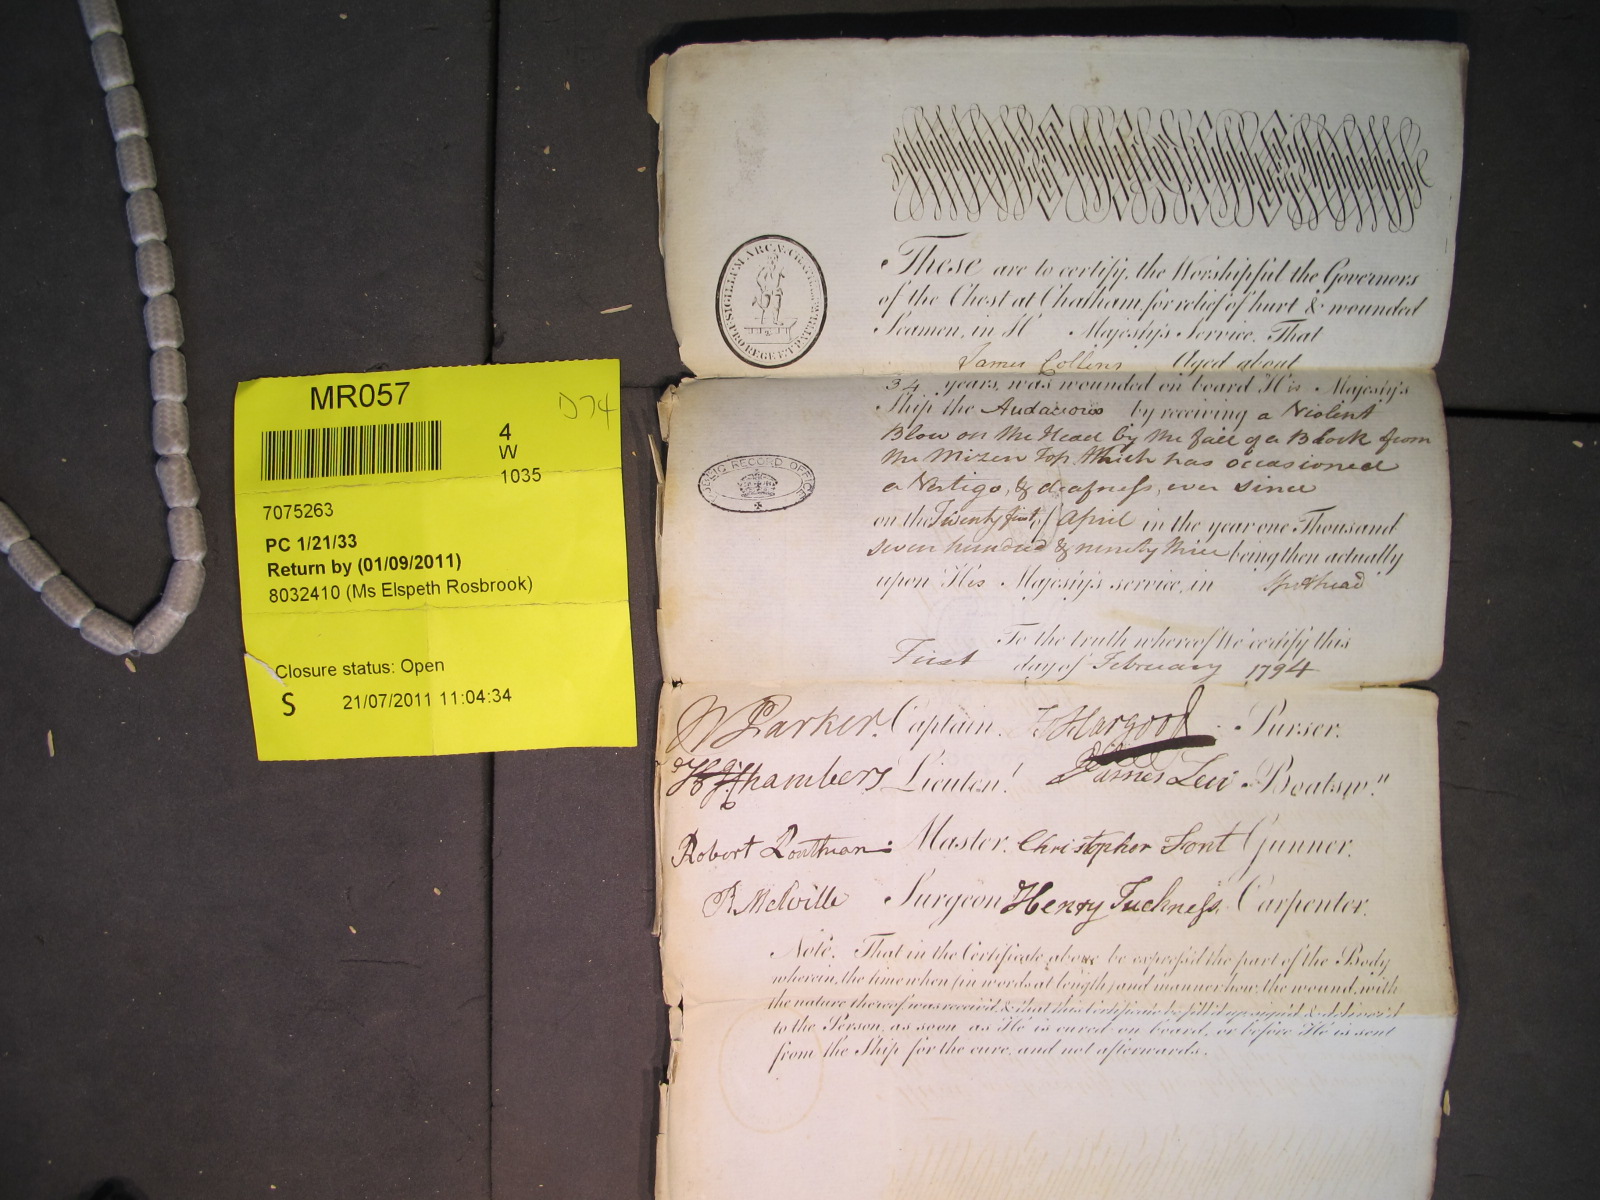 MR057
D74
4
W
1035
7075263
PC 1/21/33
Return by (01/09/2011)
8032410 (Ms Elspeth Rosbrook)
Closure status: Open
S 21/07/2011 11:04:34
These are to certify, the Worshipful the Governors
of the Chest at Chatham for relief of hurt & wounded
Seamen, in H Majesty's Service. That
James Collins Aged about
34 years, was wounded on board His Majesty's
Ship the Audacious by receiving a Violent
Blow on the Head by the fall of a Block from
the Mizen Top Which has occasioned
a Vertigo, & deafness, ever since
on the Twenty first of April in the year one Thousand
seven hundred & ninety three being then actually
upon His Majesty's service, in Spithead
To the truth whereof We certify this
First day of February 1794
PUBLIC RECORD OFFICE
W Parker. Captain. Hargood Purser.
Chambers Lieuten.t James Boatsw.n
Robert Master. Christopher Font Gunner.
R Melville Surgeon Henry Tuckness Carpenter.
Note. That in the Certificate above be express'd the part of the Body
wherein, the time when (in words at length) and manner how, the wound, with
the nature thereof was receiv'd & that this Certificate be fill'd up sign'd & deliver'd
to the Person, as soon as He is cured on board, or before He is sent
from the Ship for the cure, and not afterwards.